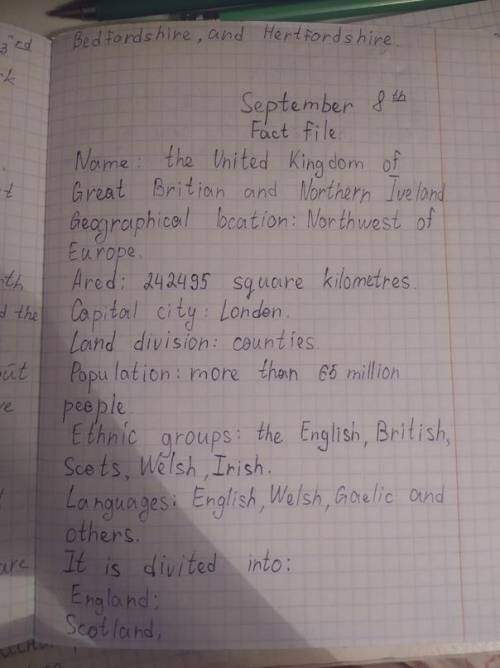 Bedfordshire, and Hertfordshire.
September 8th
Fact file
Name: the United Kingdom of
Great Britian and Northern Ireland
Geographical location: Northwest of
Europe.
Area: 242495 square kilometres.
Capital city: London.
Land division: counties.
Population: more than 65 million
people
Ethnic groups: the English, British,
Scots, Welsh, Irish.
Languages: English, Welsh, Gaelic and
others.
It is divited into:
England;
Scotland,